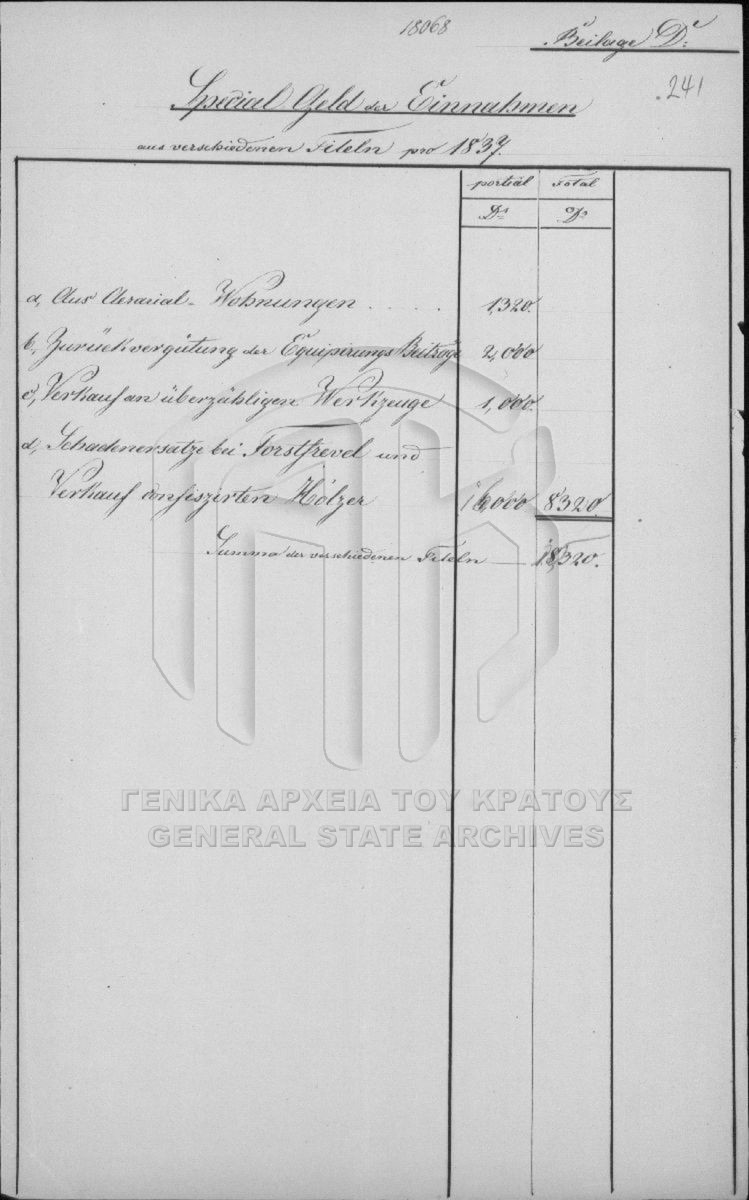 18068
Beilage D:
241
Special Geld der Einnahmen
aus verschiedenen Titeln pro 1837.
portial Total
Ds Ds
a, Aus Aerarial-Wohnungen . . . . . 1,320.
b, Zurückvergütung der Equipirungs Beiträge 2,000
c, Verkauf an überzähligen Werkzeuge 1,000.
d, Schadenersatze bei Forstfrevel und
Verkauf confiszirten Hölzer 8320.
Summa der verschiedenen Titeln — 18,320.
ΓΕΝΙΚΑ ΑΡΧΕΙΑ ΤΟΥ ΚΡΑΤΟΥΣ
GENERAL STATE ARCHIVES